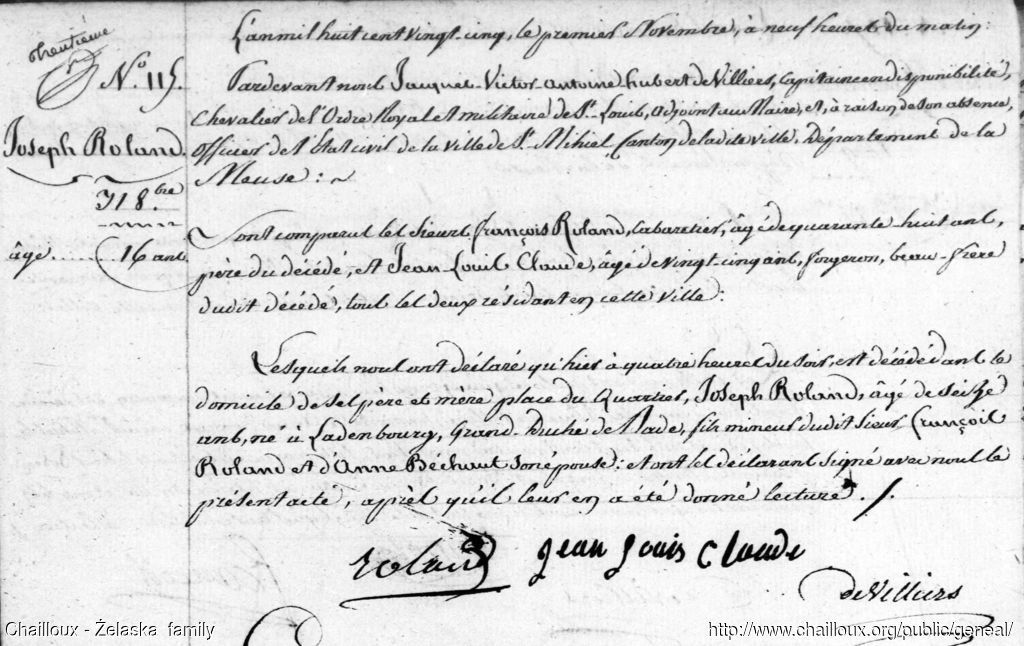 N.º 115.
Joseph Roland.
31 8.bre
âgé ...... 16 ans
L'an mil huit cent vingt-cinq, le premier Novembre, à neuf heures du matin:
Pardevant nous Jacques-Victor-Antoine-hubert de Villiers, Capitaine en disponibilité,
Chevalier de l'Ordre Royal et militaire de St. Louis, adjoint au Maire, et, à raison de son absence,
Officier de l'état civil de la ville de St. Mihiel, Canton de la dite ville, Département de la
Meuse: ~
Sont comparus les sieurs françois Roland, Cabaretier, âgé de quarante huit ans,
père du décédé, et Jean-Louis Claude, âgé de vingt-cinq ans, forgeron, beau-frère
dudit décédé, tous les deux résidant en cette ville:
Lesquels nous ont déclaré qu'hier à quatre heures du soir, est décédé dans le
domicile de ses père et mère place du Quartier, Joseph Roland, âgé de seize
ans, né à Ladenbourg, Grand-Duché de Bade, fils mineur dudit sieur françois
Roland et d'Anne Béchaut son épouse: et ont les déclarans signé avec nous le
présent acte, après qu'il leur en a été donné lecture. /.
roland
Jean Louis Claude
deVilliers
Chailloux - Żelaska family
http://www.chailloux.org/public/geneal/